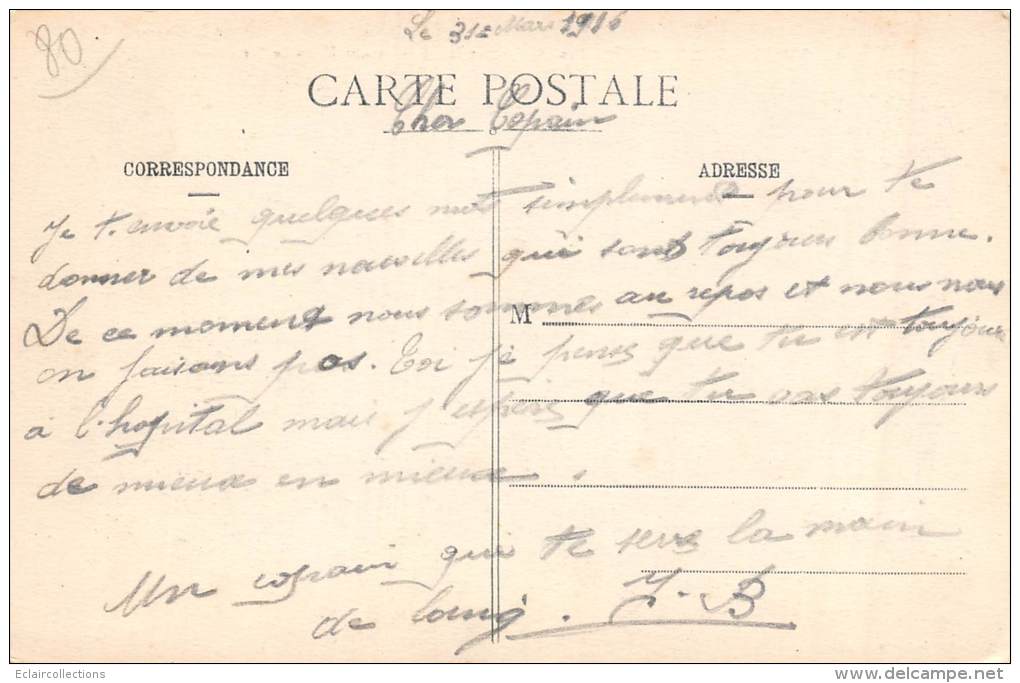 80
Le 31 = Mars 1916
CARTE POSTALE
Cher Copain
CORRESPONDANCE
ADRESSE
Je t'envoie quelques mots simplement pour te
donner de mes nouvelles qui sont toujours bonne.
De ce moment nous sommes au repos et nous nous
M
en faisons pas. Toi je pense que tu est toujours
à l'hopital mais j'espère que tu vas toujours
de mieux en mieux.
Un copain qui te serre la main
de loing. J. B
Eclaircollections
www.delcampe.net